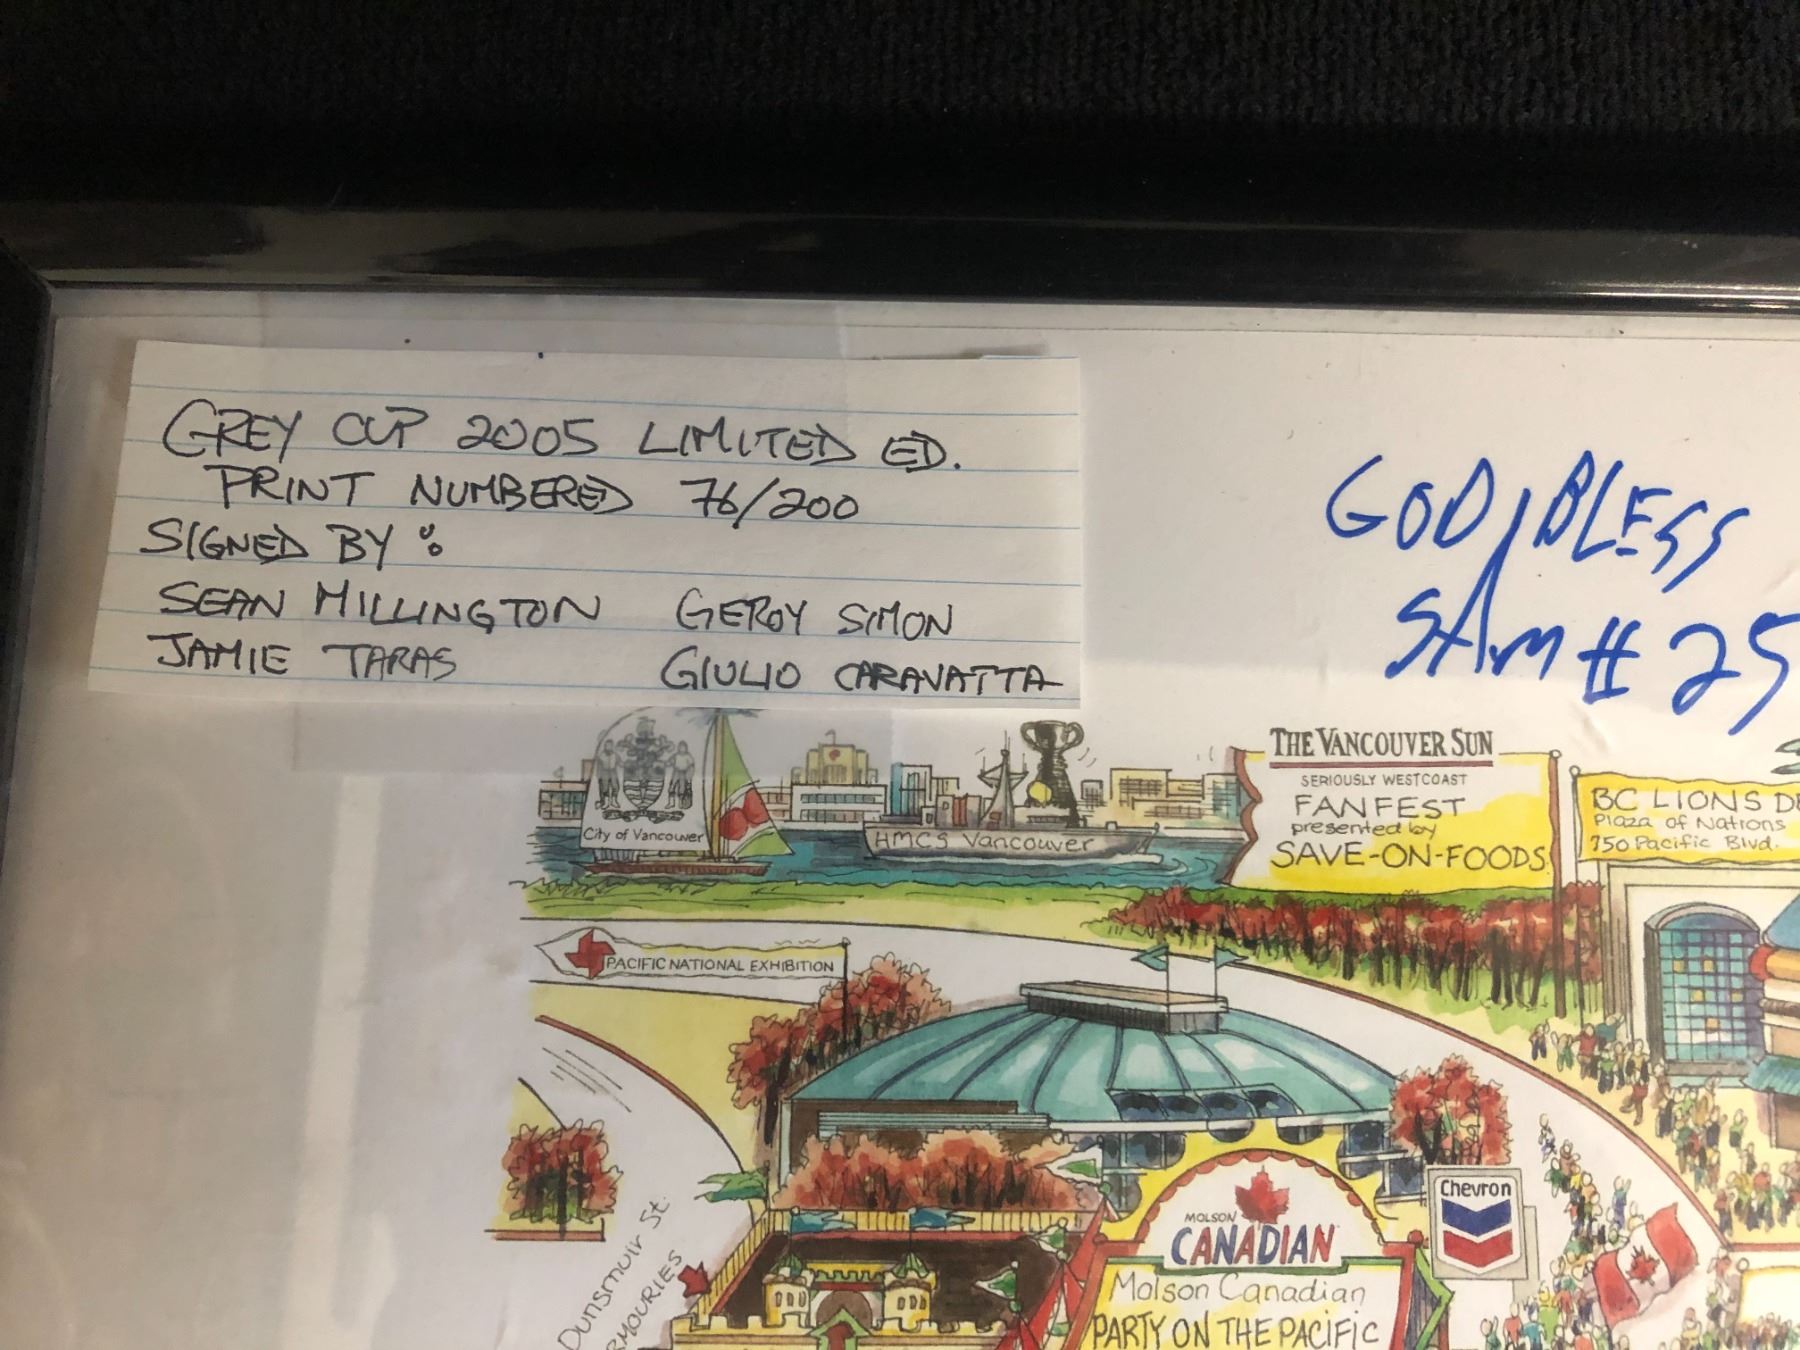 GREY CUP 2005 LIMITED ED.
PRINT NUMBERED 76/200
SIGNED BY:
SEAN MILLINGTON GEROY SIMON
JAMIE TARAS GIULIO CARAVATTA
GOD BLESS
#25
THE VANCOUVER SUN
SERIOUSLY WESTCOAST
FANFEST
presented by
SAVE-ON-FOODS
BC LIONS
Plaza of Nations
750 Pacific Blvd.
City of Vancouver
HMCS Vancouver
PACIFIC NATIONAL EXHIBITION
Chevron
MOLSON
CANADIAN
Molson Canadian
PARTY ON THE PACIFIC
Dunsmuir St.